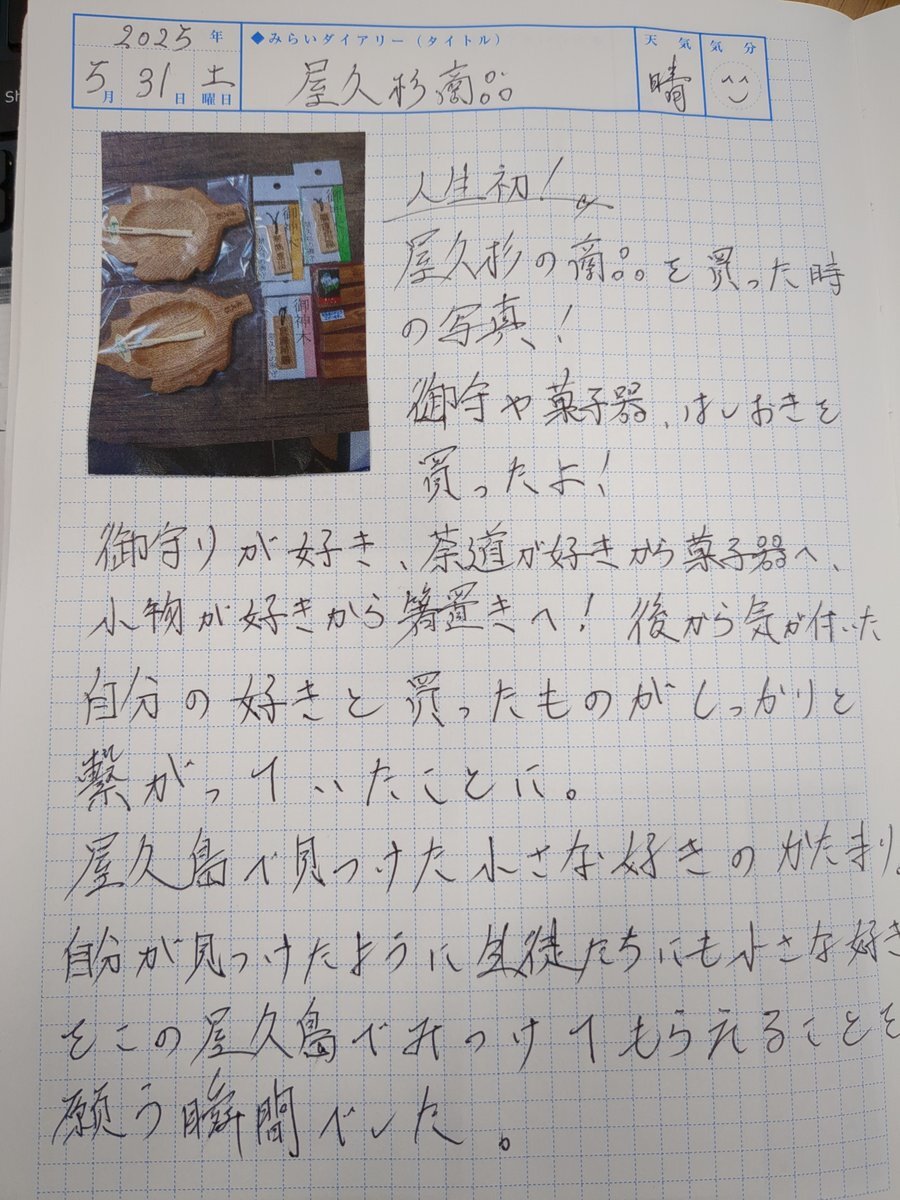 2025年
5月31日土曜日
◆みらいダイアリー(タイトル)
屋久杉商品
天気
晴
気分
人生初!
屋久杉の商品を買った時
の写真!
御守や菓子器、はしおきを
買ったよ!
御守りが好き、茶道が好きから菓子器へ、
小物が好きから箸置きへ! 後から気が付いた
自分の好きと買ったものがしっかりと
繋がっていたことに。
屋久島で見つけた小さな好きのかたまり。
自分が見つけたように生徒たちにも小さな好き
をこの屋久島でみつけてもらえることを
願う瞬間でした。
御神木